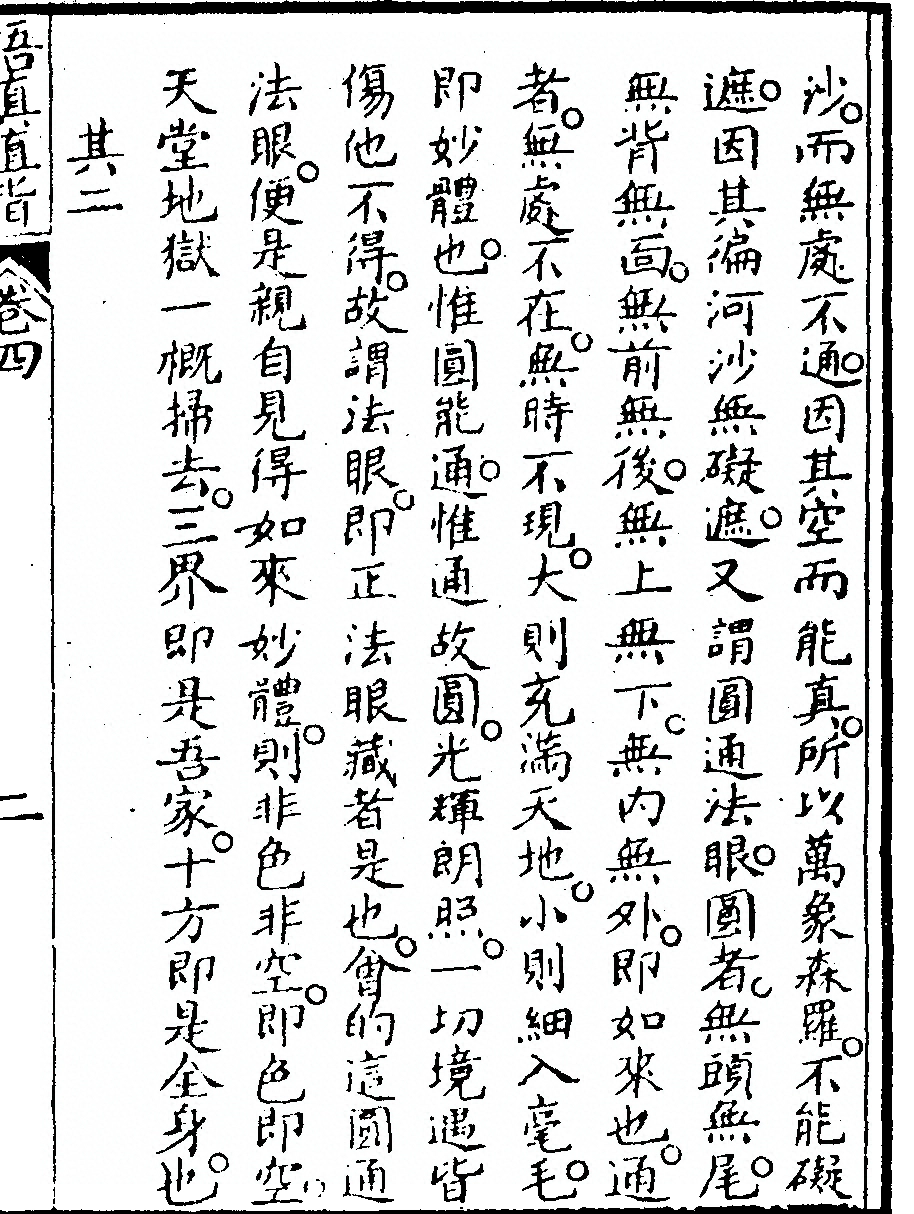 沙。而無處不通。因其空而能真。所以萬象森羅。不能礙
遮。因其徧河沙無礙遮。又謂圓通法眼。圓者。無頭無尾。
無背無面。無前無後。無上無下。無內無外。即如來也。通
者。無處不在。無時不現。大則充滿天地。小則細入毫毛。
即妙體也。惟圓能通。惟通故圓。光輝朗照。一切境遇皆
傷他不得。故謂法眼。即正法眼藏者是也。會的這圓通
法眼。便是親自見得如來妙體。則非色非空。即色即空。
天堂地獄一概掃去。三界即是吾家。十方即是全身也。
其二
悟真直指
卷四
二